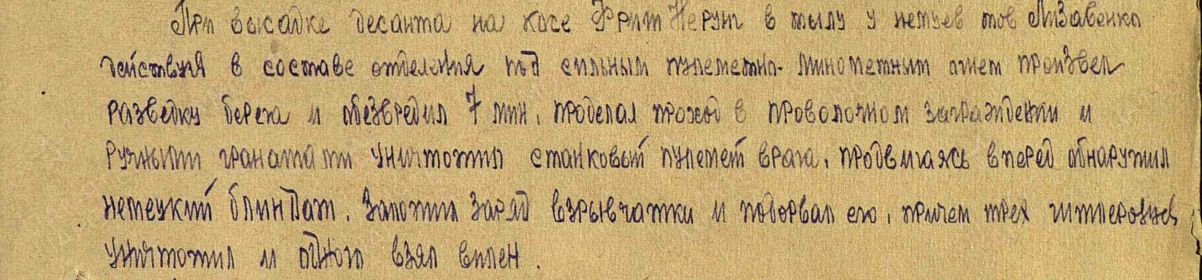 При высадке десанта на косе Фриш Нерунг в тылу у немцев тов Лизавенко
действуя в составе отделения под сильным пулеметно-минометным огнем произвел
разведку берега и обезвредил 7 мин, проделал проход в проволочном заграждении и
ручными гранатами уничтожил станковый пулемет врага, продвигаясь вперед обнаружил
немецкий блиндаж. Заложил заряд взрывчатки и подорвал его, причем трех гитлеровцев
уничтожил и одного взял в плен.